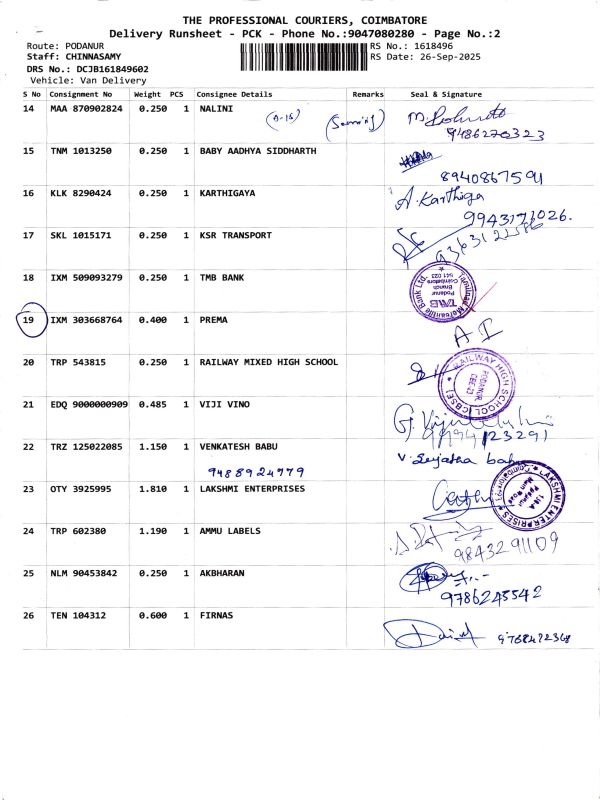 THE PROFESSIONAL COURIERS, COIMBATORE
Delivery Runsheet - PCK - Phone No.:9047080280 - Page No.:2
Route: PODANUR RS No.: 1618496
Staff: CHINNASAMY RS Date: 26-Sep-2025
DRS No.: DCJB161849602
Vehicle: Van Delivery
S No Consignment No Weight PCS Consignee Details Remarks Seal & Signature
14 MAA 870902824 0.250 1 NALINI
15 TNM 1013250 0.250 1 BABY AADHYA SIDDHARTH
8940867591
16 KLK 8290424 0.250 1 KARTHIGAYA A. Karthiga
9943171026.
17 SKL 1015171 0.250 1 KSR TRANSPORT
18 IXM 509093279 0.250 1 TMB BANK
Tamilnad Mercantile Bank Ltd. TMB Podanur Branch Coimbatore 641 023
19 IXM 303668764 0.400 1 PREMA
20 TRP 543815 0.250 1 RAILWAY MIXED HIGH SCHOOL
RAILWAY HIGH SCHOOL (CBSE) PODANUR CBE-23
21 EDQ 9000000909 0.485 1 VIJI VINO
22 TRZ 125022085 1.150 1 VENKATESH BABU
9488924979
23 OTY 3925995 1.810 1 LAKSHMI ENTERPRISES
LAKSHMI ENTERPRISES Podanur Main Road
24 TRP 602380 1.190 1 AMMU LABELS
9843291109
25 NLM 90453842 0.250 1 AKBHARAN
9786245542
26 TEN 104312 0.600 1 FIRNAS